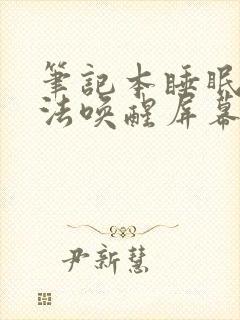 筆記本睡眠
法喚醒屏幕
尹新慧